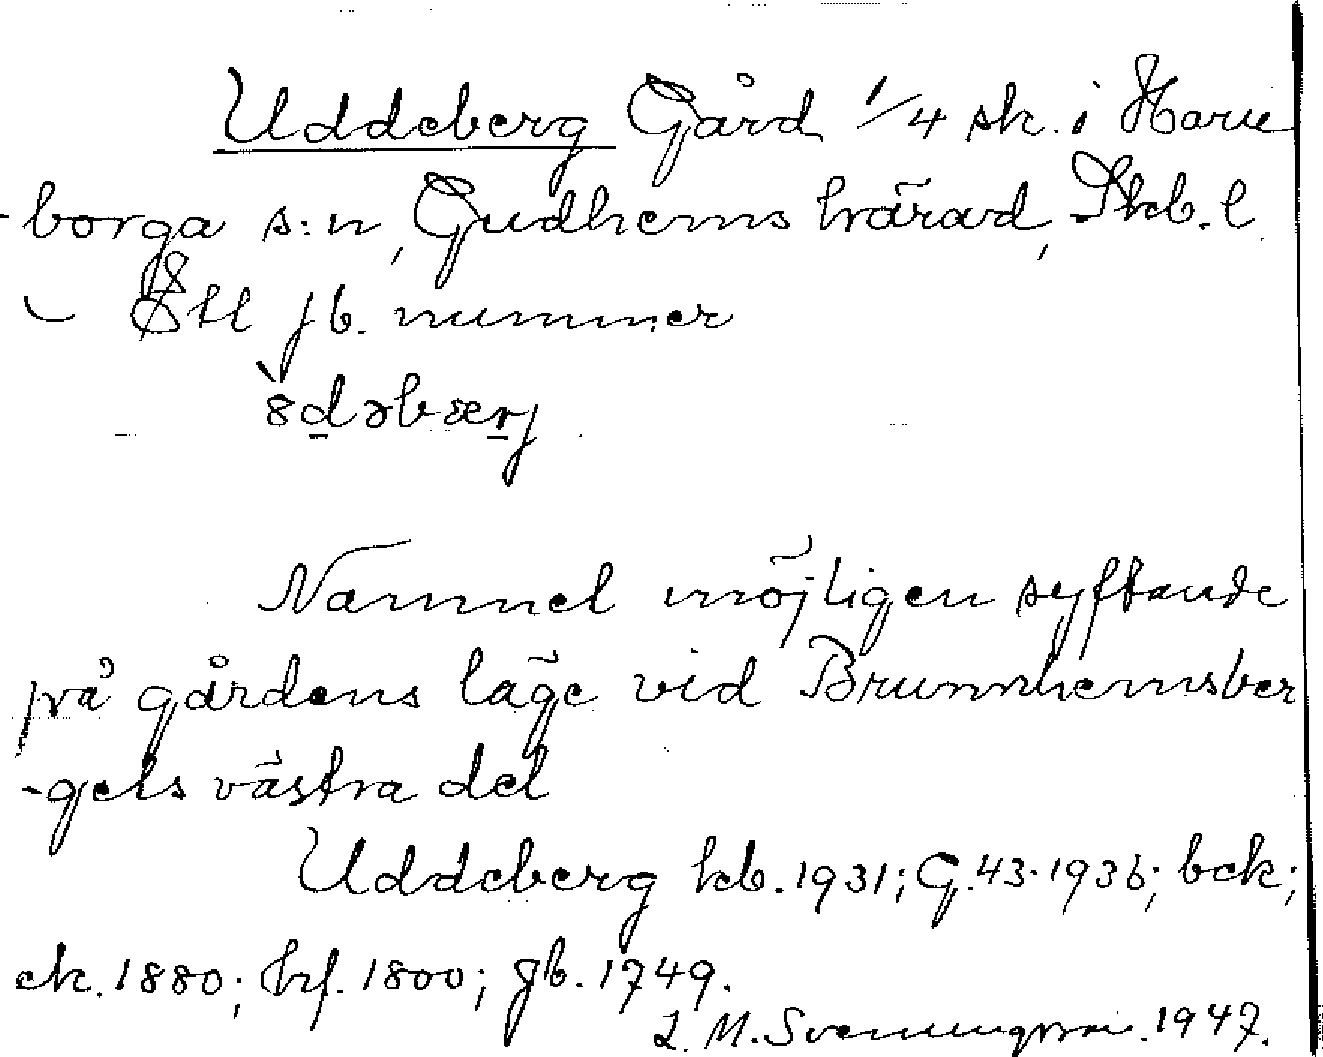 Uddeberg Gård 1/4 sk. i Horn
-borga s:n, Gudhems härad, Skb. l
- Ett jb. nummer
`8dəbærj
Namnet möjligen syftande
på gårdens läge vid Brunnhemsber
-gets västra del
Uddeberg kb. 1931; G. 43. 1936; bck;
ck. 1880; hf. 1800; gb. 1749.
L. M. Svenungsson. 1947.